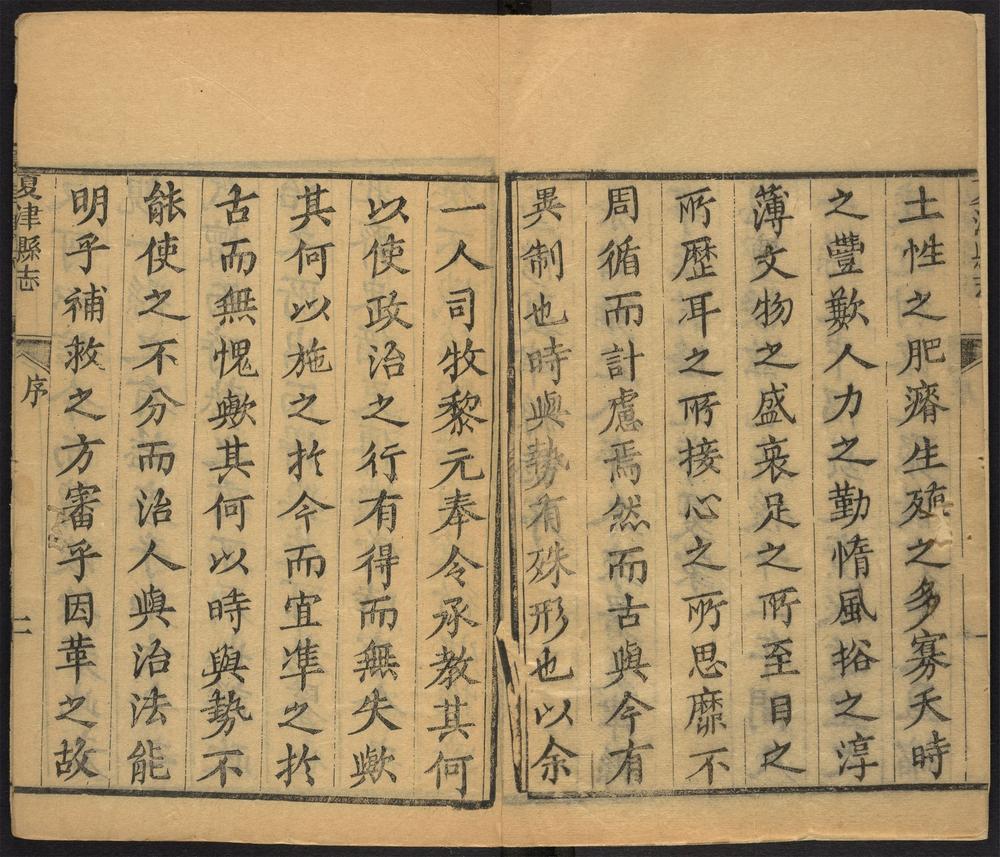 土性之肥瘠生殖之多寡天時
之豐歉人力之勤惰風俗之淳
薄文物之盛衰足之所至目之
所歷耳之所接心之所思靡不
周循而計慮焉然而古與今有
異制也時與勢有殊形也以余
一人司牧黎元奉令承教其何
以使政治之行有得而無失歟
其何以施之於今而宜準之於
古而無愧歟其何以時與勢不
能使之不分而治人與治法能
明乎補救之方審乎因革之故
夏津縣志
序
二